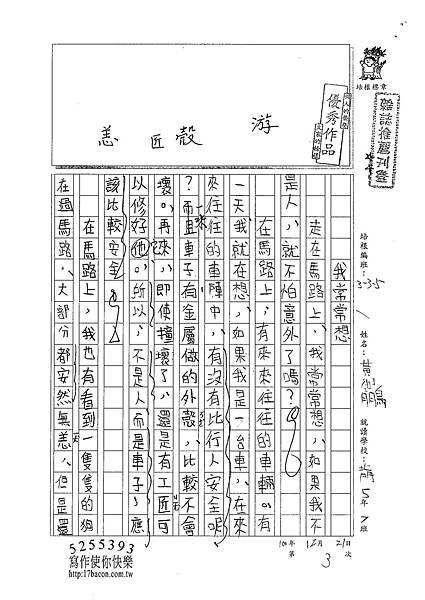 培根標章
優秀作品
游
殼
匠
恙
培根編班:3-3-5
姓名:黃
就讀學校:
5年7班
100年12月21日
第3次
我常常想
走在馬路上,我常常想,如果我不
是人,就不怕意外了嗎?
在馬路上,有來來往往的車輛。有
一天我就在想,如果我是一台車,在來
來往往的車陣中,有沒有比行人安全呢
?而且車子有金屬做的外殼,比較不會
壞。再來,即使撞壞了,還是有工匠可
以修好他。所以,不是人而是車子,應
該比較安全。
在馬路上,我也有看到一隻隻的狗
在過馬路,大部分都安然無恙,但是還
5255393
寫作使你快樂
http://www.17bacon.com.tw